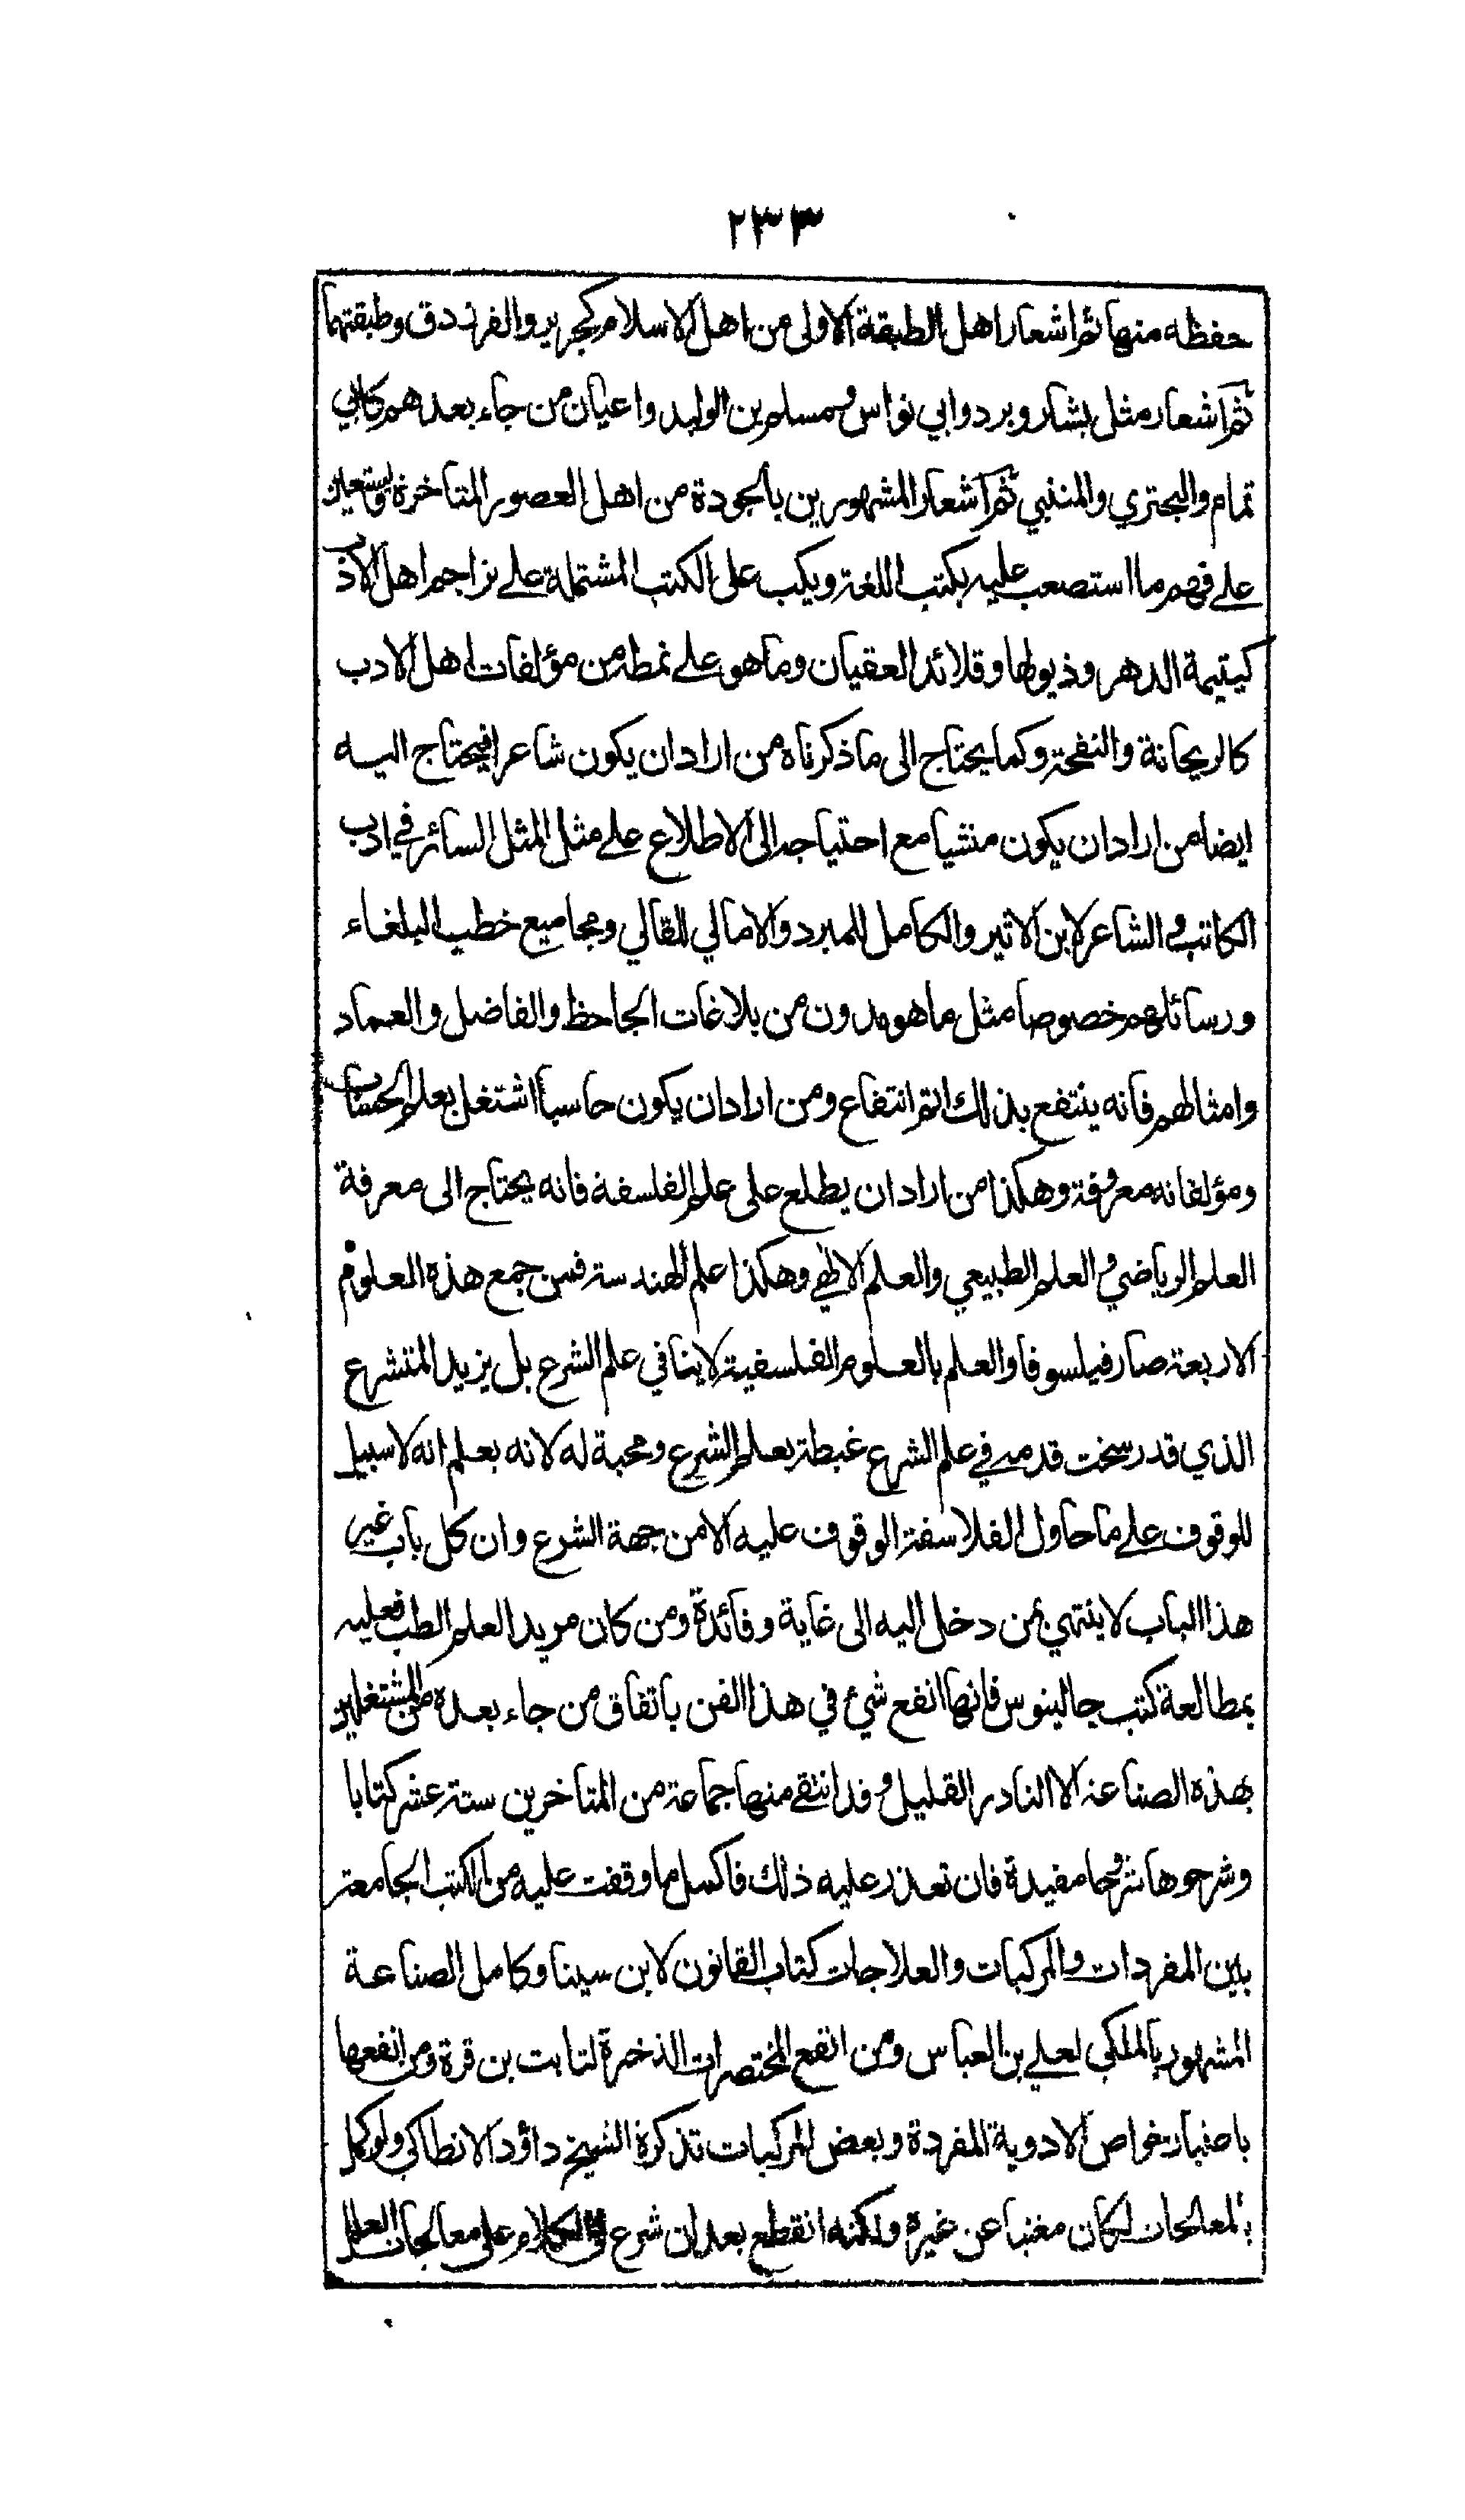 ٢٣٣
حفظه منها ثم اشعار اهل الطبقة الاولى من اهل الاسلام كجرير والفرزدق وطبقتهما
ثم اشعار مثل بشار وبرد وابي نواس ومسلم بن الوليد واعيان من جاء بعدهم كابي
تمام والبحتري والمتنبي ثم اشعار المشهورين بالجودة من اهل العصور المتاخرة ويستعين
على فهم ما استصعب عليه بكتب اللغة ويكب على الكتب المشتملة على تراجم اهل الادب
كيتيمة الدهر وذيولها وقلائد العقيان وما هو على نمطه من مؤلفات اهل الادب
كالريحانة والنفحة وكما يحتاج الى ما ذكرناه من اراد ان يكون شاعرا فيحتاج اليه
ايضا من اراد ان يكون منشيا مع احتياجه الى الاطلاع على مثل المثل السائر في ادب
الكاتب والشاعر لابن الاثير والكامل للمبرد والامالي للقالي ومجاميع خطب البلغاء
ورسائلهم خصوصا مثل ما هو مدون من بلاغات الجاحظ والفاضل والعماد
وامثالهم فانه ينتفع بذلك اتم انتفاع ومن اراد ان يكون حاسبا اشتغل بعلم الحساب
ومؤلفاته معروفة وهكذا من اراد ان يطلع على علم الفلسفة فانه يحتاج الى معرفة
العلم الرياضي والعلم الطبيعي والعلم الالهي وهكذا علم الهندسة فمن جمع هذه العلوم
الاربعة صار فيلسوفا والعلم بالعلوم الفلسفية لا ينافي علم الشرع بل يزيد المتشرع
الذي قد رسخت قدمه في علم الشرع غبطة بعلم الشرع ومحبة له لانه يعلم انه لا سبيل
للوقوف على ما حاول الفلاسفة الوقوف عليه الا من جهة الشرع وان كل باب غير
هذا الباب لا ينتهي بمن دخل اليه الى غاية وفائدة ومن كان مريدا لعلم الطب فعليه
بمطالعة كتب جالينوس فانها انفع شيء في هذا الفن باتفاق من جاء بعده من المشتغلين
بهذه الصناعة الا النادر القليل وقد انتقى منها جماعة من المتاخرين ستة عشر كتابا
وشرحوها شروحا مفيدة فان تعذر عليه ذلك فاكمل ما وقفت عليه من الكتب الجامعة
بين المفردات والمركبات والعلاجات كتاب القانون لابن سينا وكامل الصناعة
المشهور بالملكي لعلي بن العباس ومن انفع المختصرات الذخيرة لثابت بن قرة ومن انفعها
باعتبار خواص الادوية المفردة وبعض المركبات تذكرة الشيخ داؤد الانطاكي ولو كمل
بالمعالجات لكان مغنيا عن غيره ولكنه انقطع بعد ان شرع في الكلام على معالجات العلل